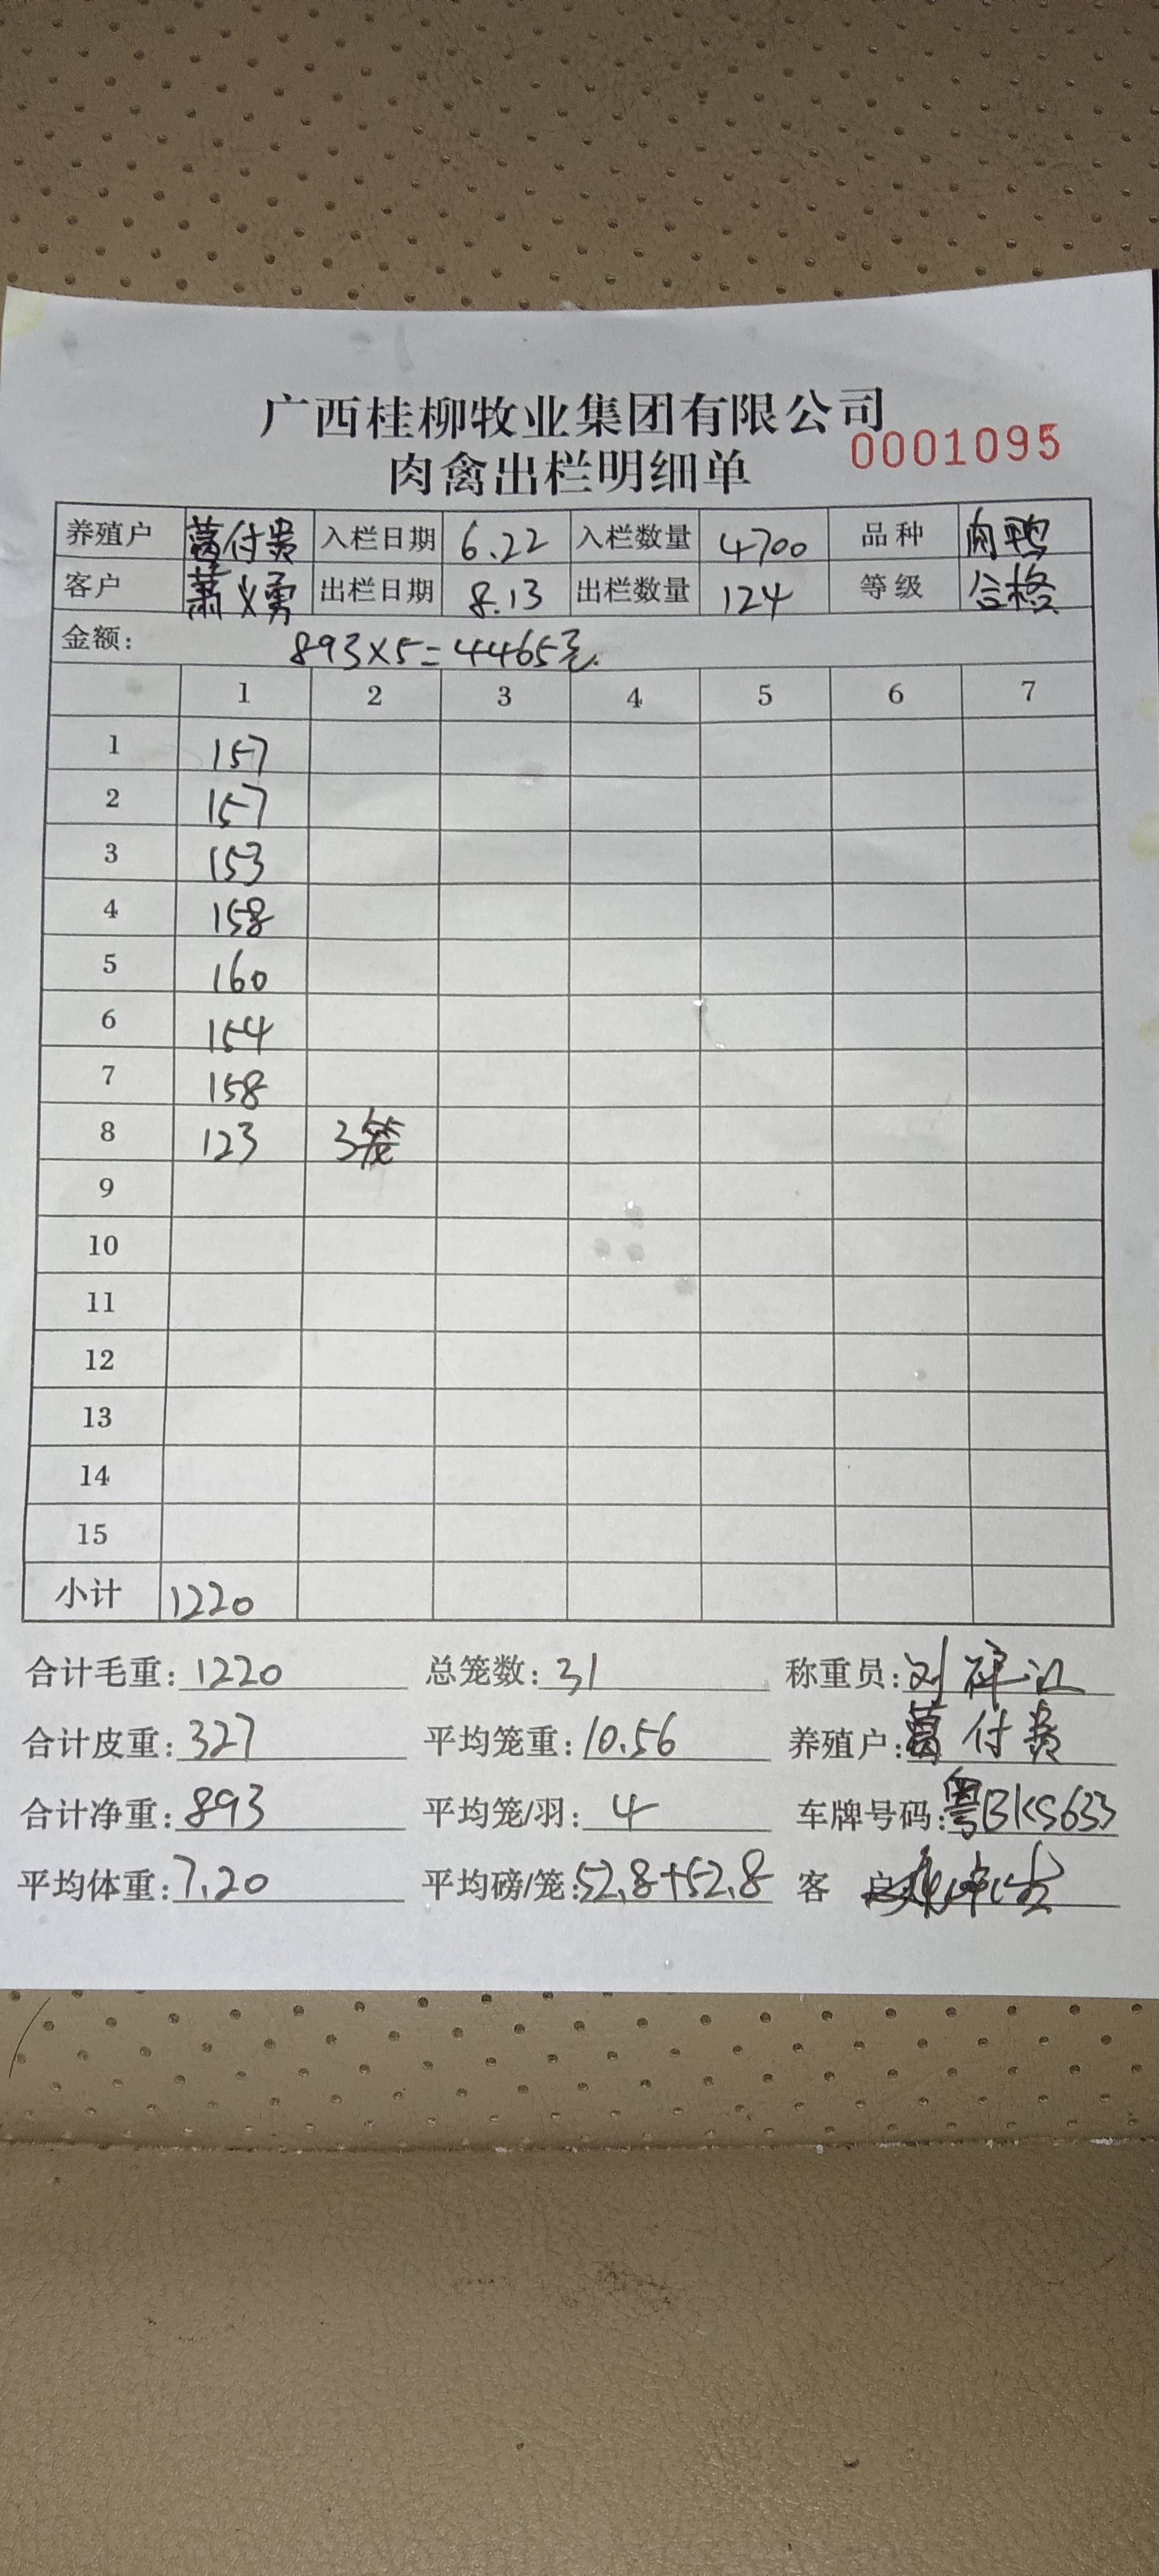 广西桂柳牧业集团有限公司
0001095
肉禽出栏明细单
养殖户 葛付贵 入栏日期 6.22 入栏数量 4700 品种 肉鸭
客户 萧义勇 出栏日期 8.13 出栏数量 124 等级 合格
金额: 893×5=4465元.
1 2 3 4 5 6 7
1 157
2 157
3 153
4 158
5 160
6 154
7 158
8 123 3笼
9
10
11
12
13
14
15
小计 1220
合计毛重: 1220 总笼数: 31 称重员: 刘
合计皮重: 327 平均笼重: 10.56 养殖户: 葛付贵
合计净重: 893 平均笼/羽: 4 车牌号码: 粤BKS633
平均体重: 7.20 平均磅/笼: 52.8+52.8 客户